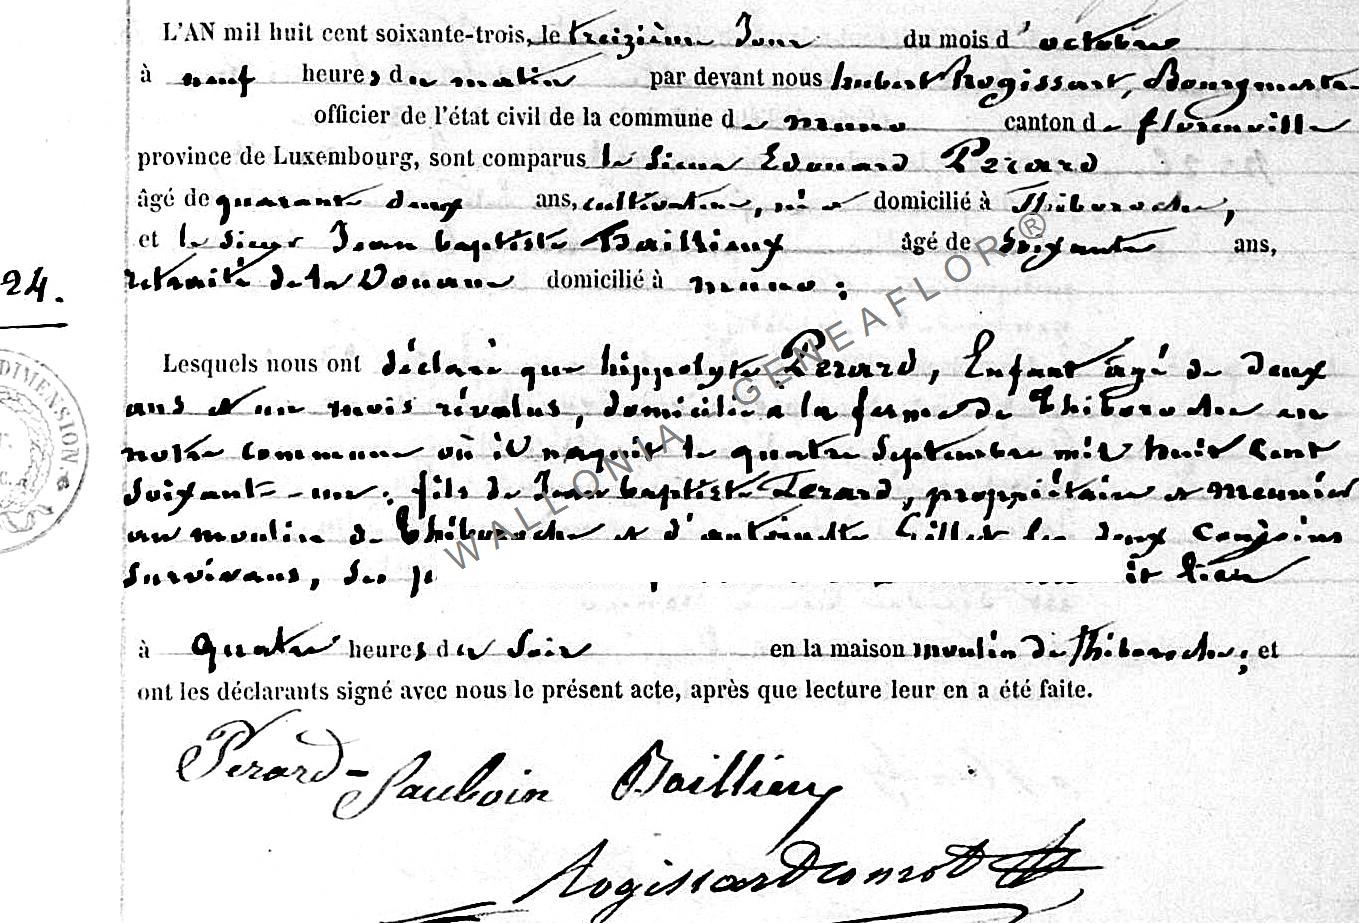 L'AN mil huit cent soixante-trois, le treizième Jour du mois d'octobre
à neuf heures du matin par devant nous hubert Rogissart, Bourgmestre
officier de l'état civil de la commune de muno canton de florenville
province de Luxembourg, sont comparus le Sieur Edouard Perard
âgé de quarante deux ans, cultivateur, né et domicilié à Thiberoche,
et le sieur Jean baptiste Baillieux âgé de Soixante ans,
24.
retraité de la Douane domicilié à muno ;
DIMENSION
Lesquels nous ont déclaré que hippolyte Perard, Enfant âgé de deux
ans et un mois révolus, domicilié à la ferme de Thiberoche en
notre commune où il naquit le quatre Septembre mil huit Cent
Soixante-une, fils de Jean baptiste Perard, propriétaire et meunier
au moulin de Thiberoche et d'antoinette Gillet les deux Conjoins
Survivans,
lieu
à quatre heures du Soir en la maison moulin de Thiberoche, et
ont les déclarants signé avec nous le présent acte, après que lecture leur en a été faite.
Perard-Sauboin Baillieux
Rogissart
WALLONIA GENEAFLOR ®